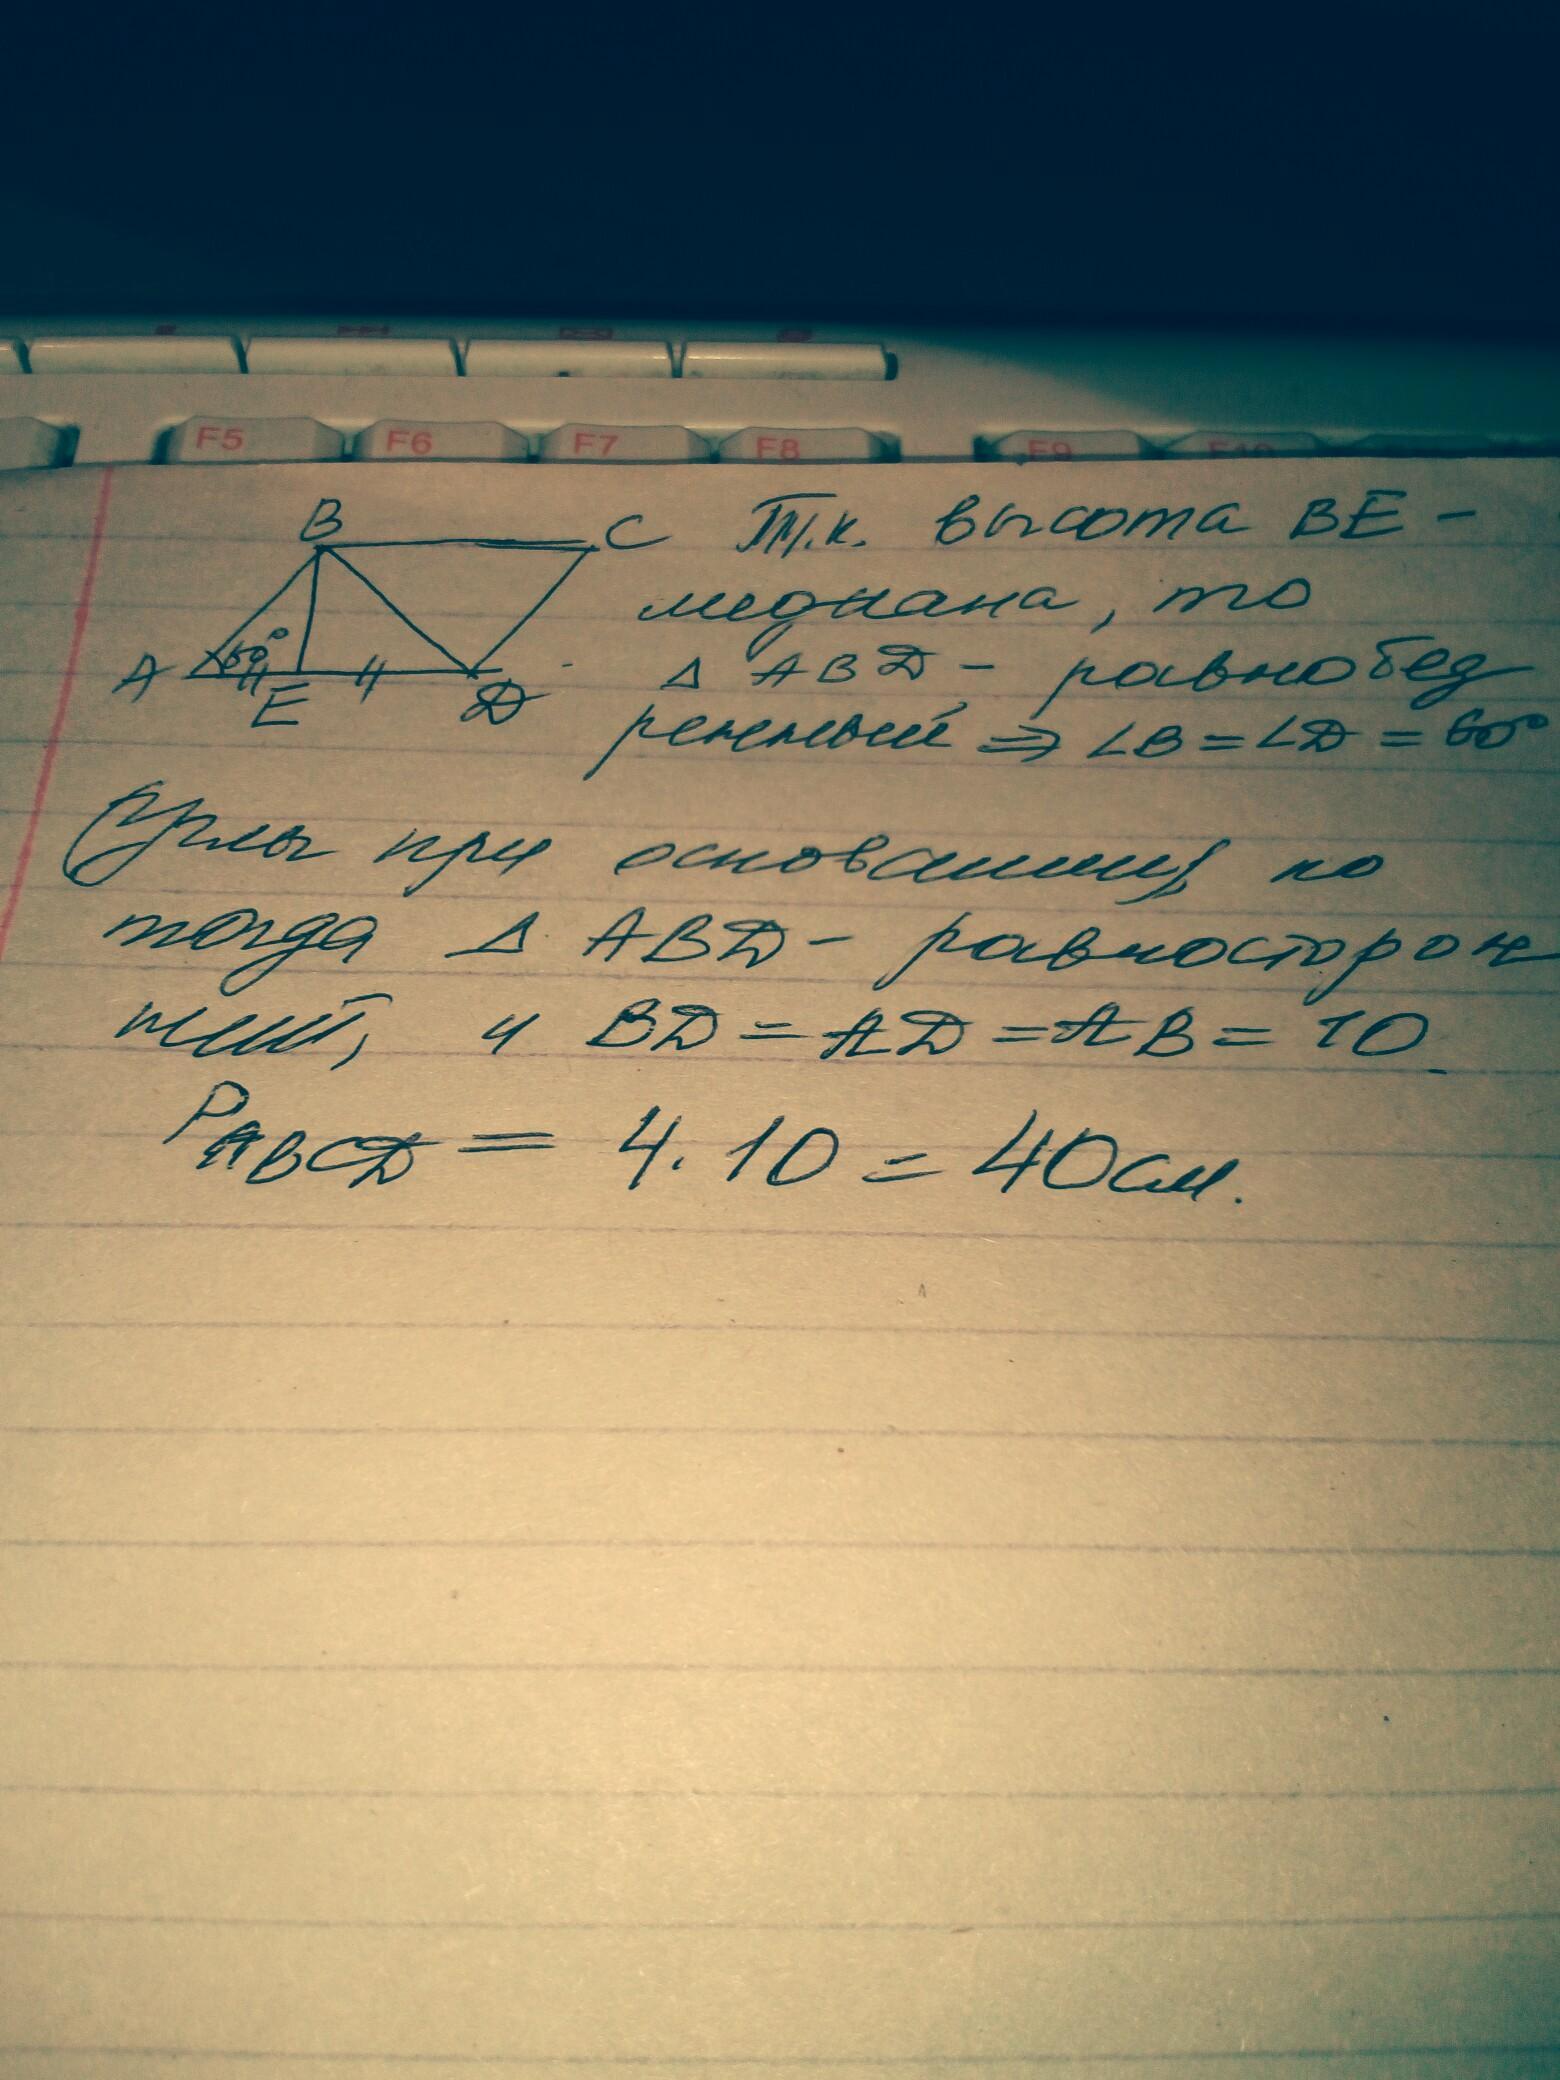 F5 F6 F7 F8 F9 F10
B C
A 60° E D
Т.к. высота BE -
медиана, то
Δ ABD - равнобед
ренный ⇒ ∠B = ∠D = 60°
(углы при основании), но
тогда Δ ABD - равносторон
ний, и BD = AD = AB = 10
P ABCD = 4 · 10 = 40 см.